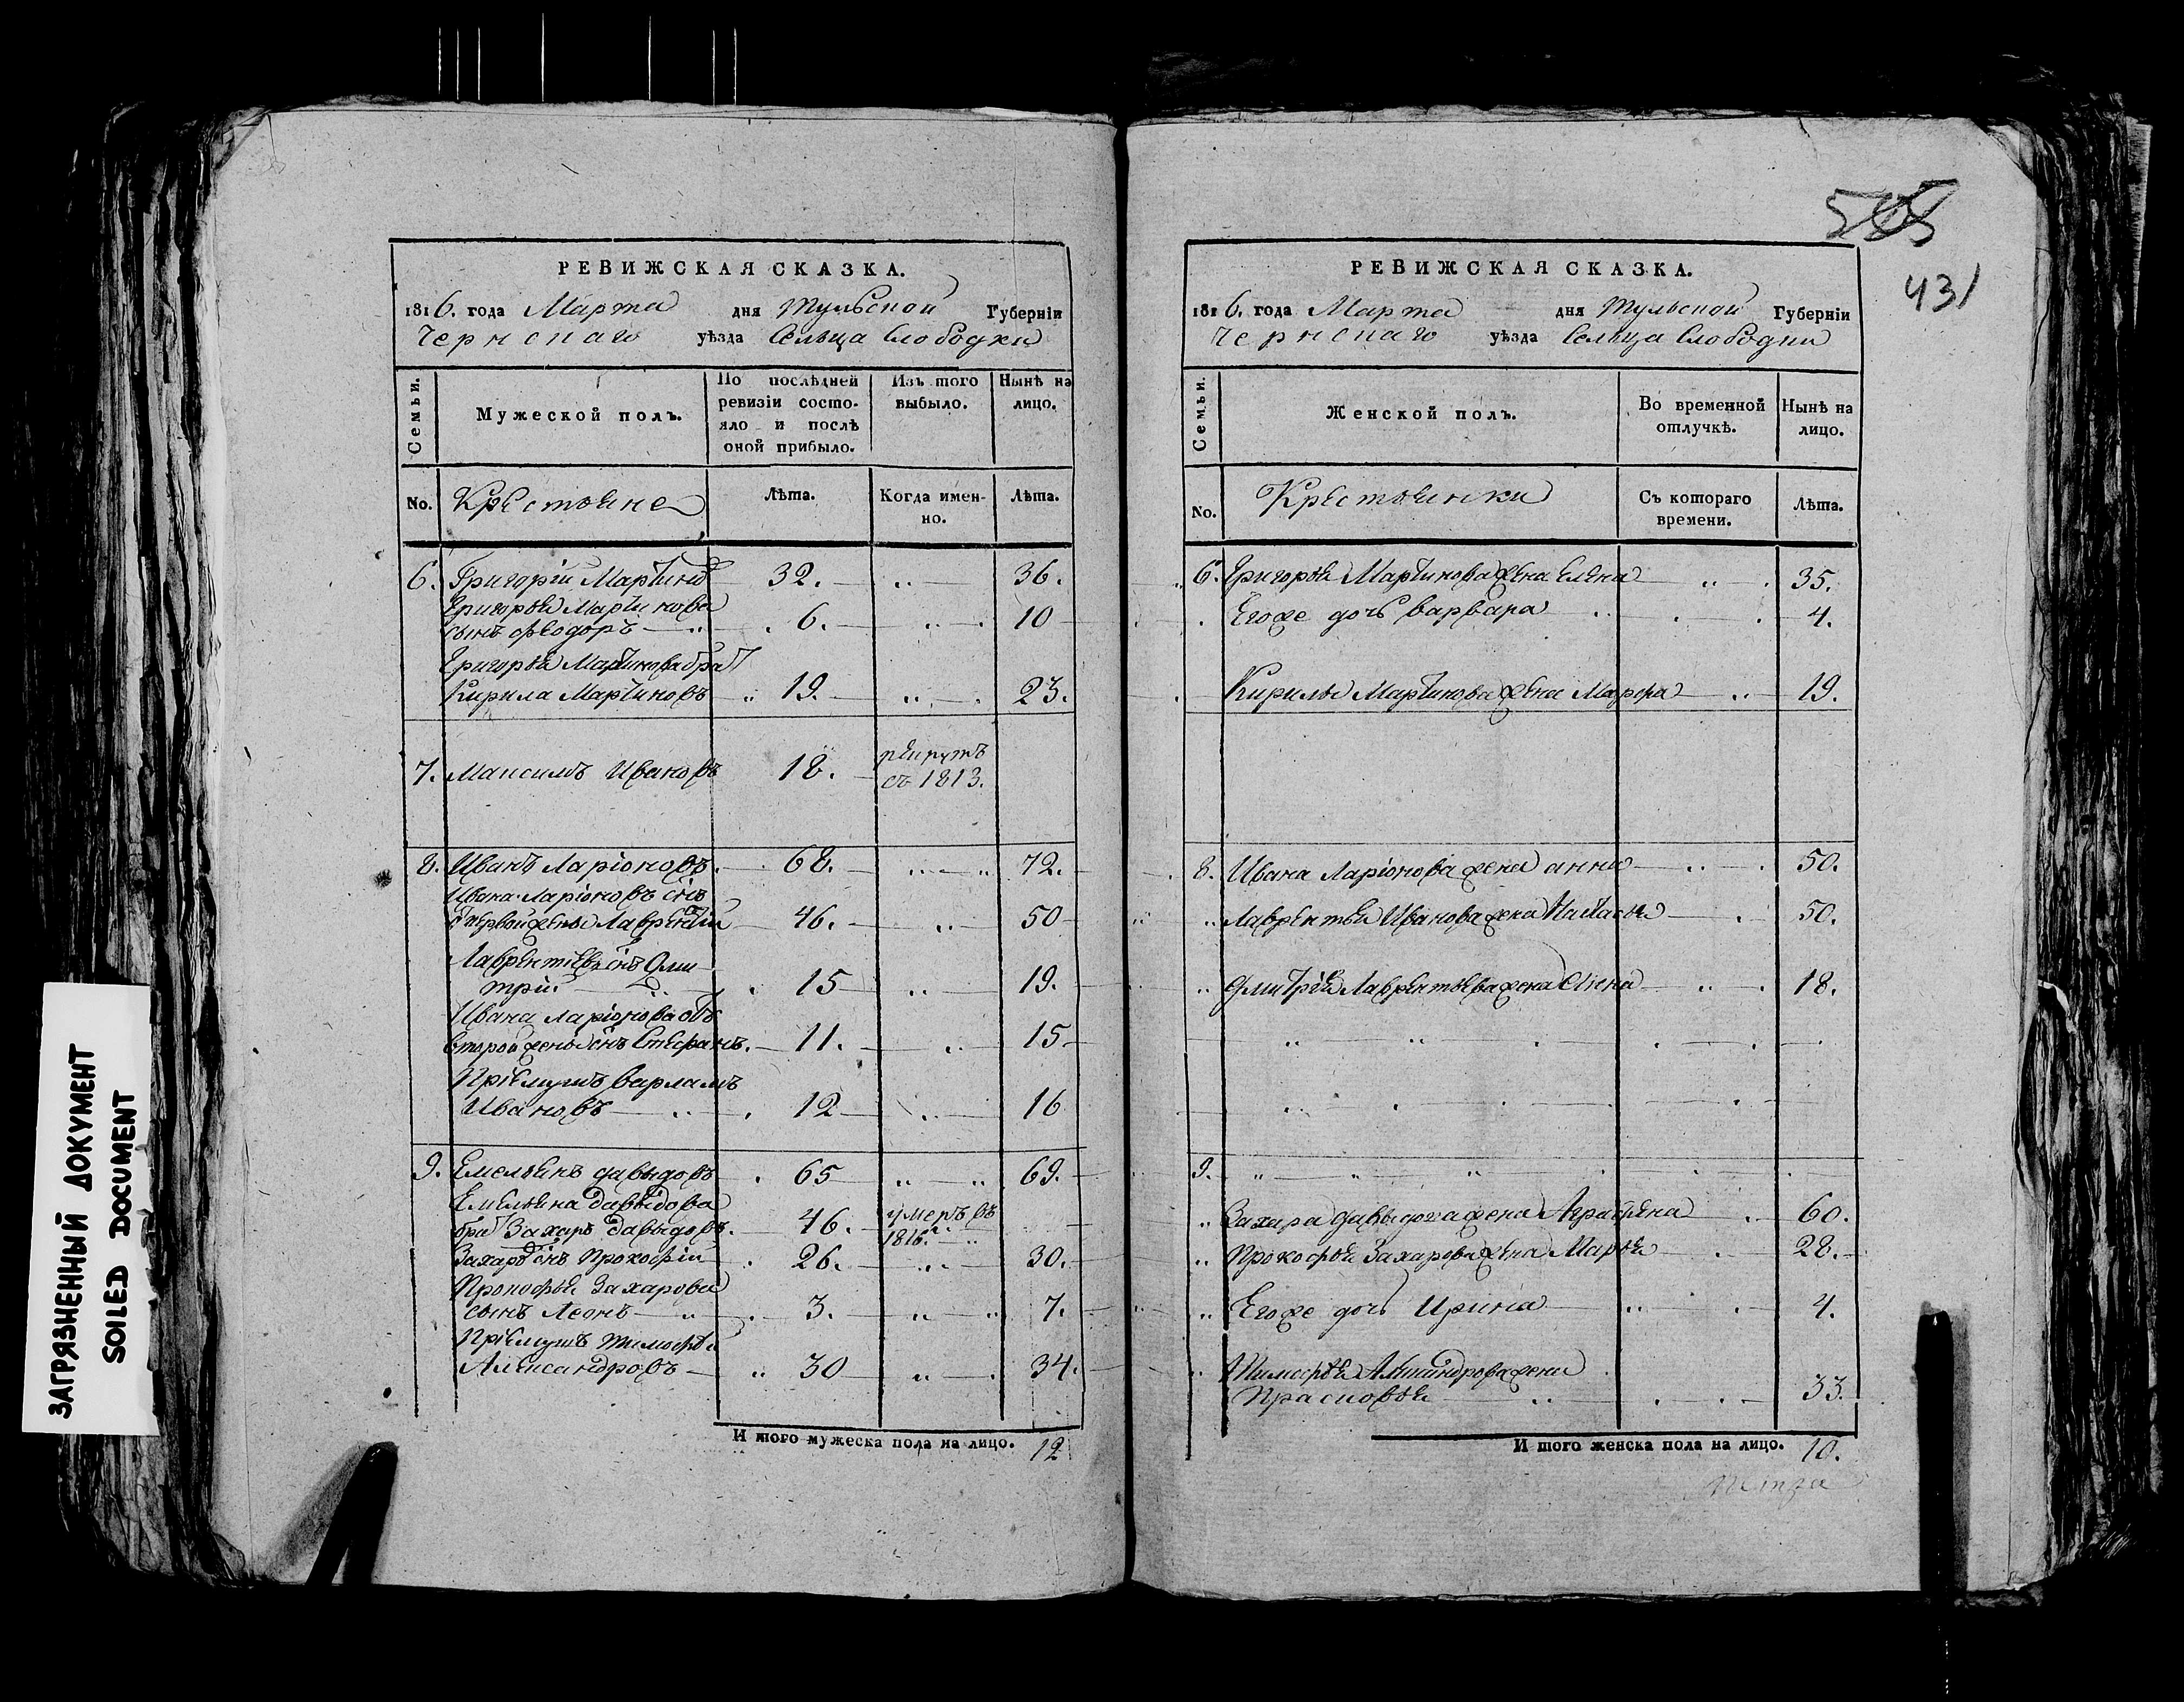 ЗАГРЯЗНЕННЫЙ ДОКУМЕНТ
SOILED DOCUMENT
РЕВИЖСКАЯ СКАЗКА.
1816. года Марта дня Тульской Губерніи
Чернскаго уѣзда Сельца Слободки
Семьи. Мужеской полъ. По послѣдней ревизіи состояло и послѣ оной прибыло. Изъ того выбыло. Нынѣ на лицо.
No. Крестьяне Лѣта. Когда именно. Лѣта.
6. Григорій Мартиновъ 32. 36.
Григорья Мартинова
сынъ Ѳеодоръ 6. 10
Григорья Мартинова братъ
Кирила Мартиновъ 19. 23.
рекрутъ
7. Максимъ Ивановъ 18. съ 1813.
8. Иванъ Ларіоновъ. 68. 72.
Ивана Ларіоновъ снъ
первой жены Лаврентій 46. 50
Лаврентьевъ снъ Дми-
трій 15 19.
Ивана Ларіонова отъ
второй жены снъ Стефанъ. 11. 15
Пріемышъ Варламъ
Ивановъ 12 16
9. Емельянъ Давыдовъ 65 69.
Емельяна Давыдова
братъ Захаръ Давыдовъ. 46. умеръ въ 1816.
Захаръ снъ Прокофій 26. 30.
Прокофья Захарова
сынъ Леонъ 3. 7.
Пріемышъ Тимофей
Александровъ 30 34.
И того мужеска пола на лицо. 12
585
431
РЕВИЖСКАЯ СКАЗКА.
1816. года Марта дня Тульской Губерніи
Чернскаго уѣзда Сельца Слободки
Семьи. Женской полъ. Во временной отлучкѣ. Нынѣ на лицо.
No. Крестьянки Съ котораго времени. Лѣта.
6. Григорья Мартинова жена Елена 35.
Егоже дочь Варвара 4.
Кирилы Мартинова жена Марфа 19.
8. Ивана Ларіонова жена Анна 50.
Лаврентья Иванова жена Настасья 50.
Дмитрія Лаврентьева жена 18.
9.
Захара Давыдова жена Аграфена 60.
Прокофья Захарова жена Марья 28.
Егоже дочь Ирина 4.
Тимофея Александрова жена
Прасковья 33.
И того женска пола на лицо. 10.